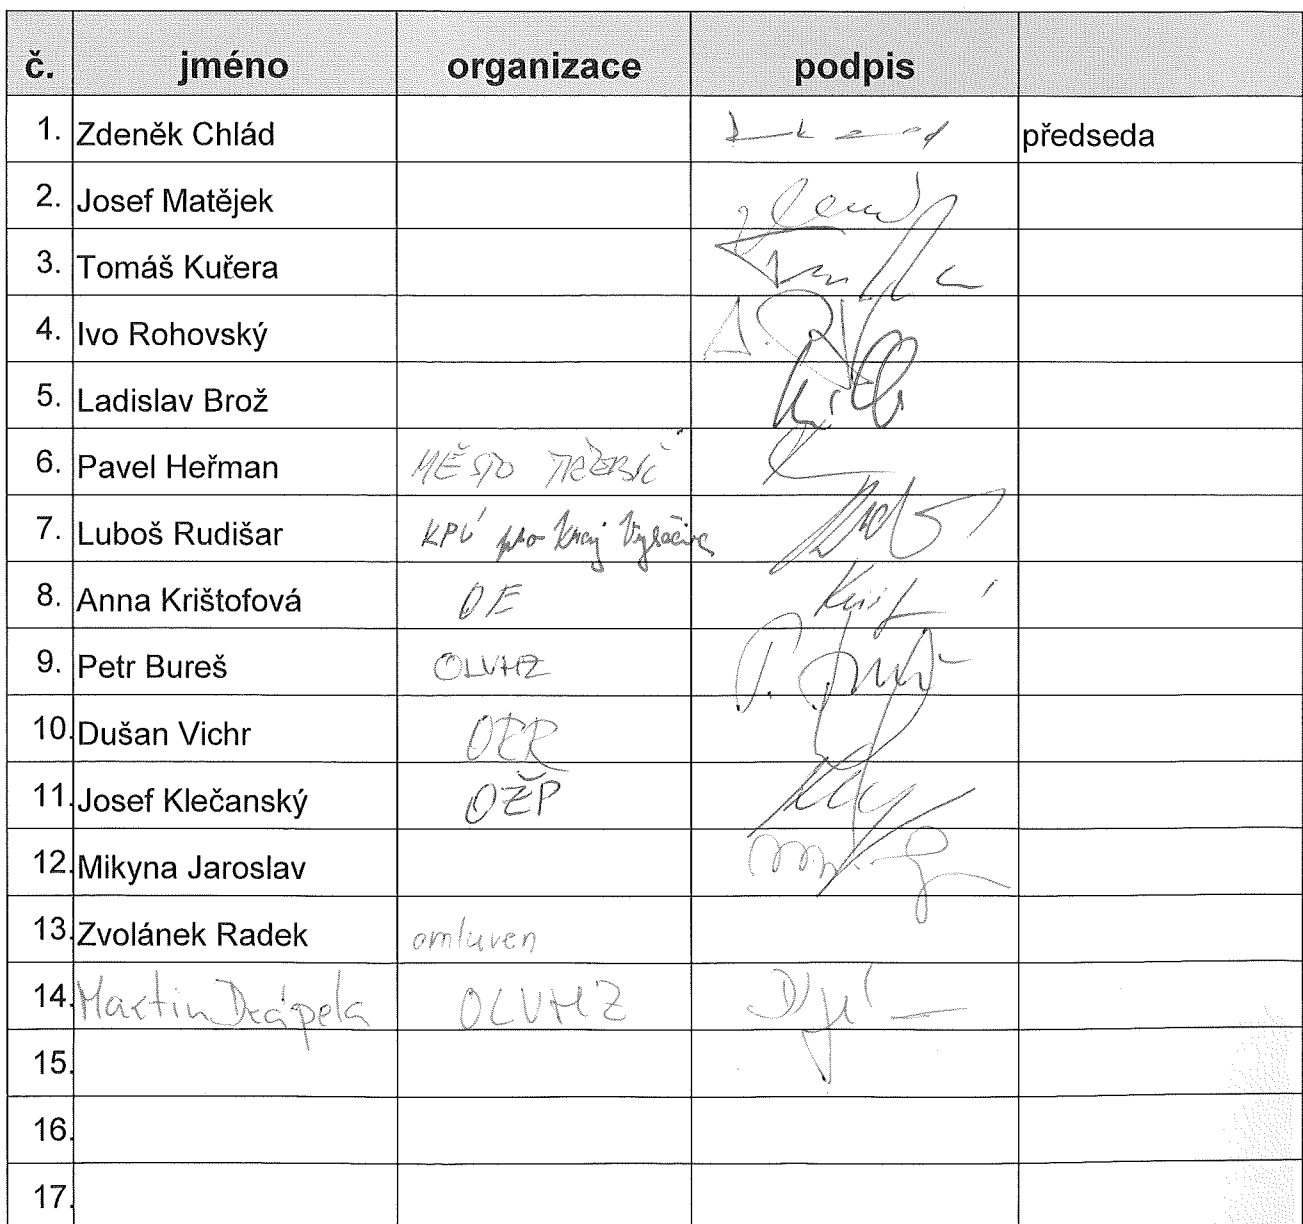 č. jméno organizace podpis
1. Zdeněk Chlád předseda
2. Josef Matějek
3. Tomáš Kuřera
4. Ivo Rohovský
5. Ladislav Brož
6. Pavel Heřman MĚSTO TŘEBÍČ
7. Luboš Rudišar KPÚ pro Kraj Vysočina
8. Anna Krištofová OE
9. Petr Bureš OLVHZ
10. Dušan Vichr
11. Josef Klečanský OŽP
12. Mikyna Jaroslav
13. Zvolánek Radek omluven
14. Martin Drápela OLVHZ
15.
16.
17.